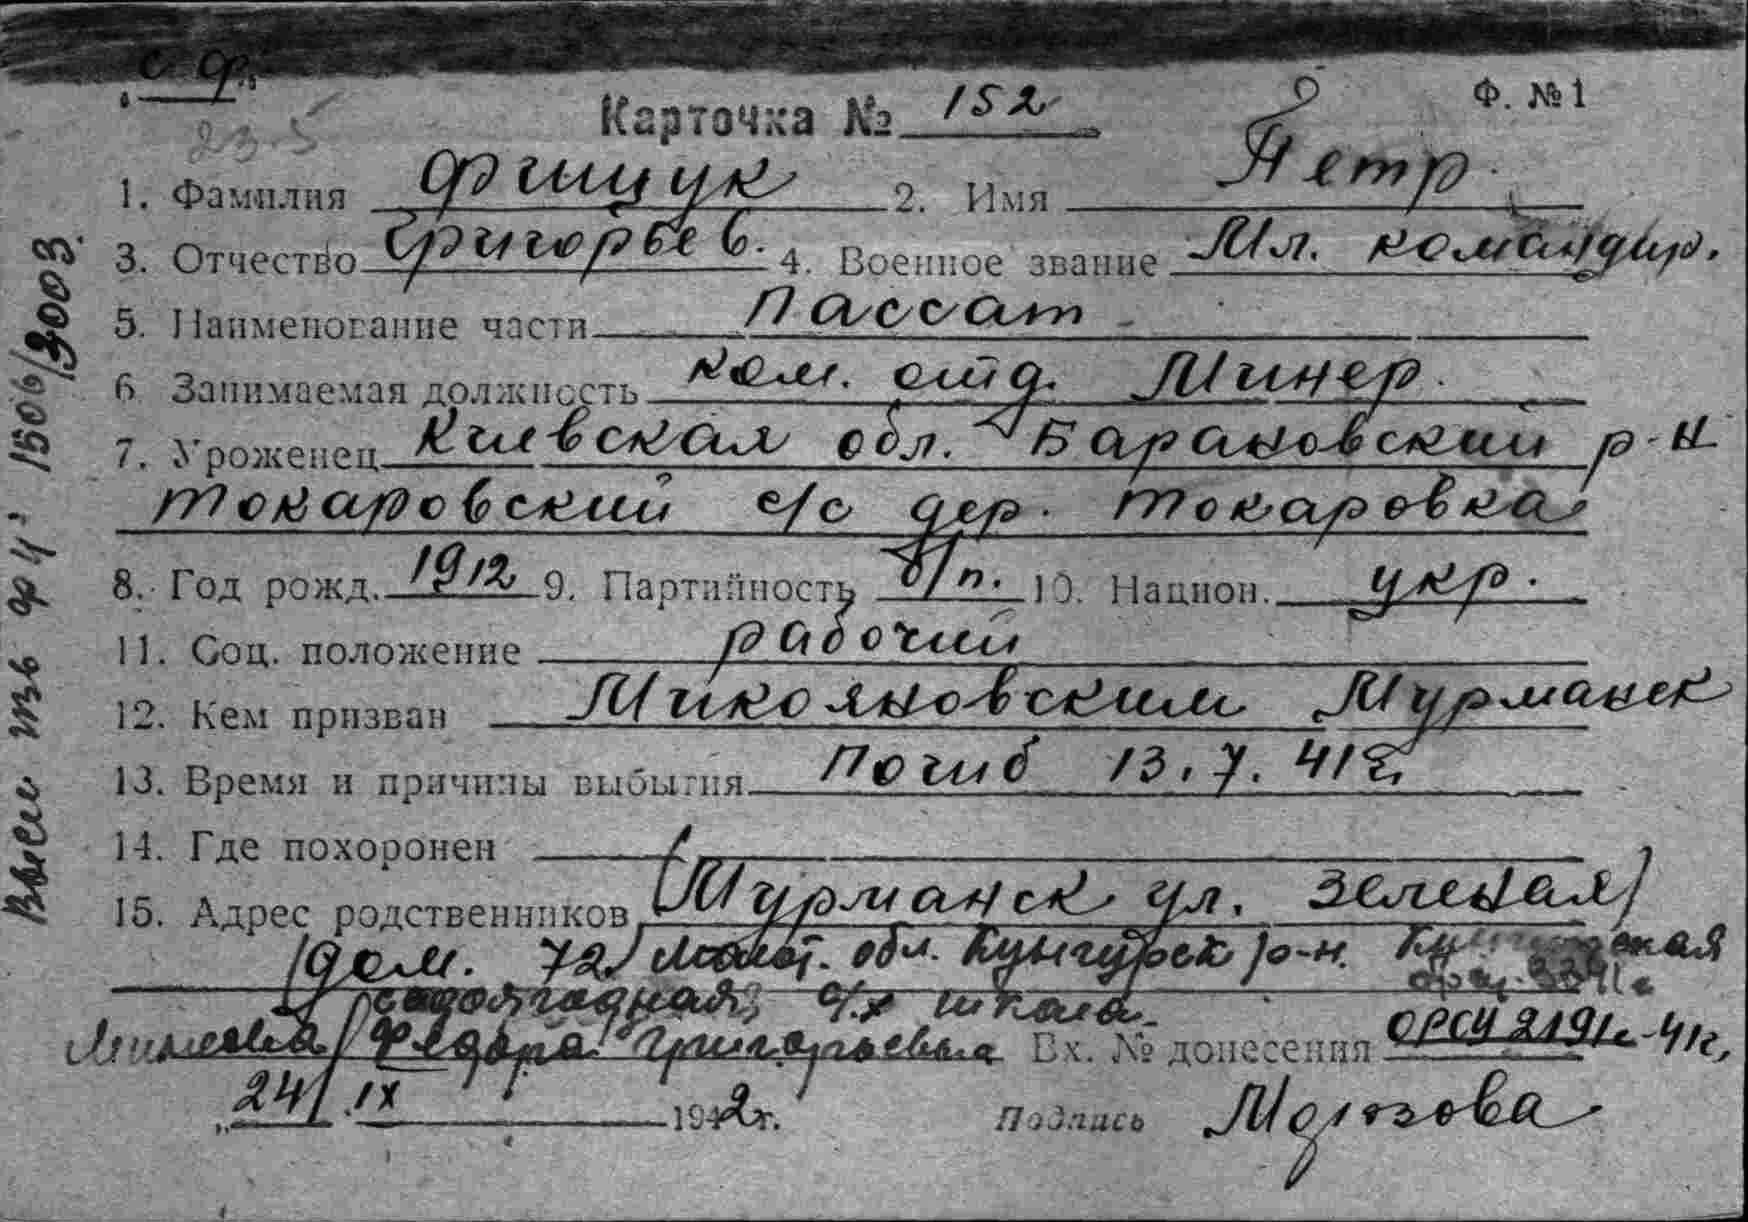 с. ф.
23.5
Карточка № 152
Ф. № 1
1. Фамилия Фищук 2. Имя Петр
3. Отчество Григорьев. 4. Военное звание Мл. командир.
5. Наименование части Пассат
6 Занимаемая должность ком. отд. Минер.
7. Уроженец Киевская обл. Барановский р-н
Токаровский с/с дер. Токаровка
8. Год рожд. 1912 9. Партийность б/п. 10. Национ. укр.
11. Соц. положение рабочий
12. Кем призван Микояновским Мурманск
13. Время и причины выбытия Погиб 13.7.41г.
14. Где похоронен
15. Адрес родственников (Мурманск ул. Зеленая)
(дом. 72) Молот. обл. Кунгурск р-н.
с/х школа.
Федора Григорьевна Вх. № донесения ОРСУ 2191с-41г.
„24/ IX 1942г. Подпись Морозова
Выси изв ф 4: 1506/3003.